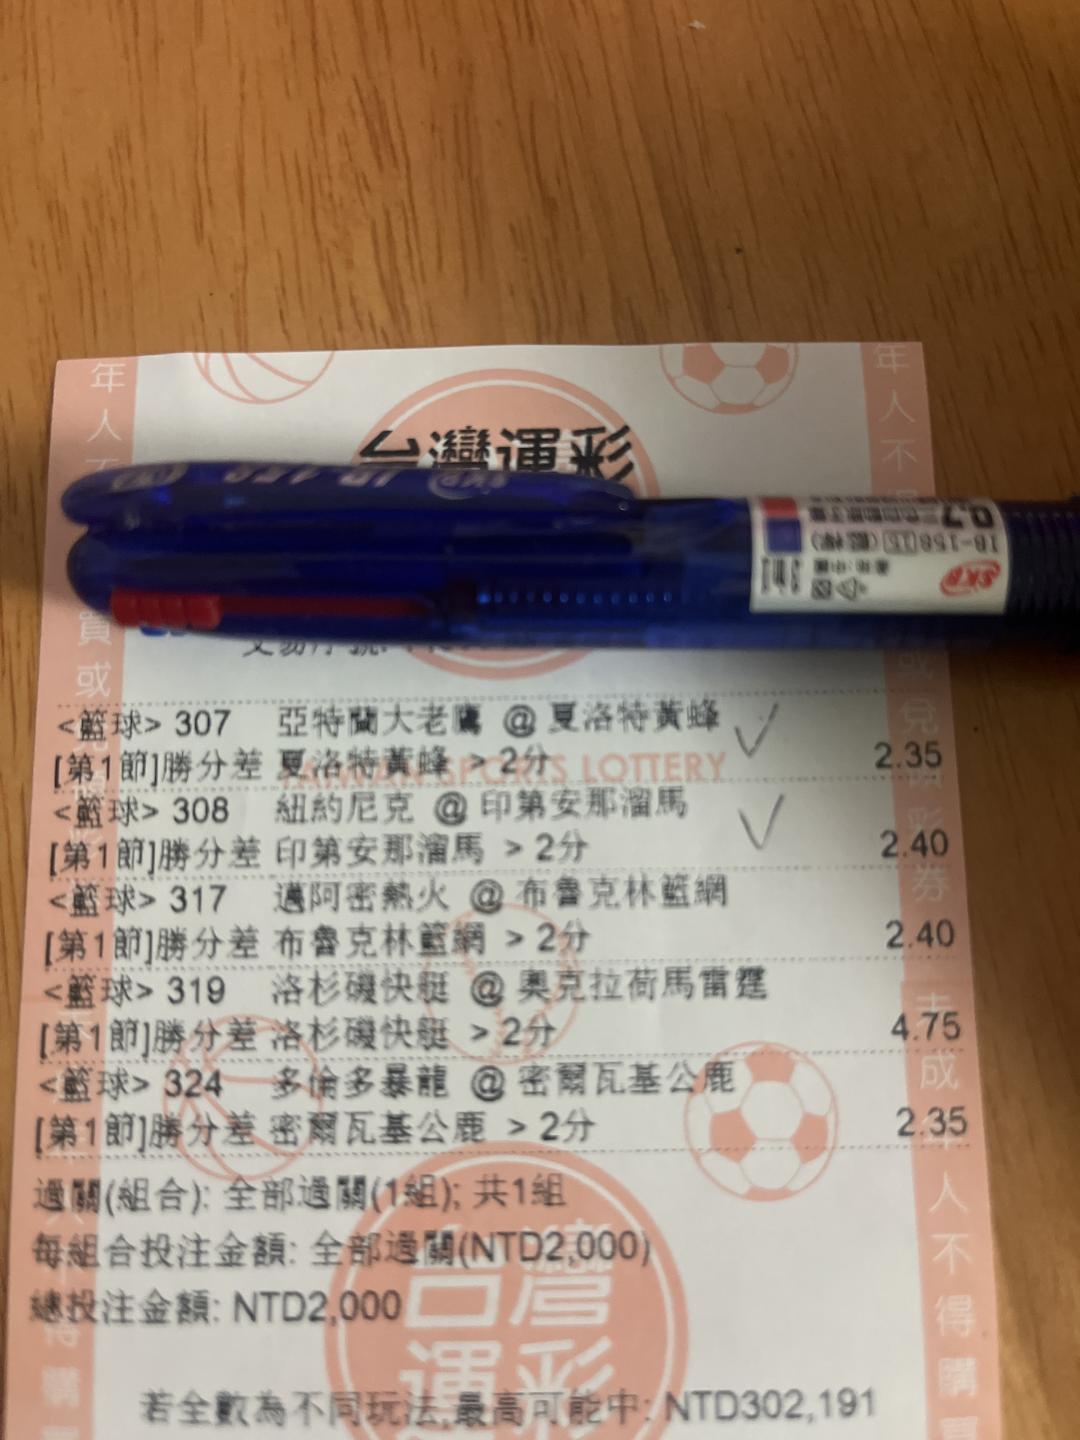 台灣運彩
SKB IB-158
0.7
IB-158
SKB
<籃球> 307 亞特蘭大老鷹 @ 夏洛特黃蜂
[第1節]勝分差 夏洛特黃蜂 > 2分 2.35
TAIWAN SPORTS LOTTERY
<籃球> 308 紐約尼克 @ 印第安那溜馬
[第1節]勝分差 印第安那溜馬 > 2分 2.40
<籃球> 317 邁阿密熱火 @ 布魯克林籃網
[第1節]勝分差 布魯克林籃網 > 2分 2.40
<籃球> 319 洛杉磯快艇 @ 奧克拉荷馬雷霆
[第1節]勝分差 洛杉磯快艇 > 2分 4.75
<籃球> 324 多倫多暴龍 @ 密爾瓦基公鹿
[第1節]勝分差 密爾瓦基公鹿 > 2分 2.35
過關(組合): 全部過關(1組); 共1組
每組合投注金額: 全部過關(NTD2,000)
總投注金額: NTD2,000
台灣
運彩
若全數為不同玩法,最高可能中: NTD302,191